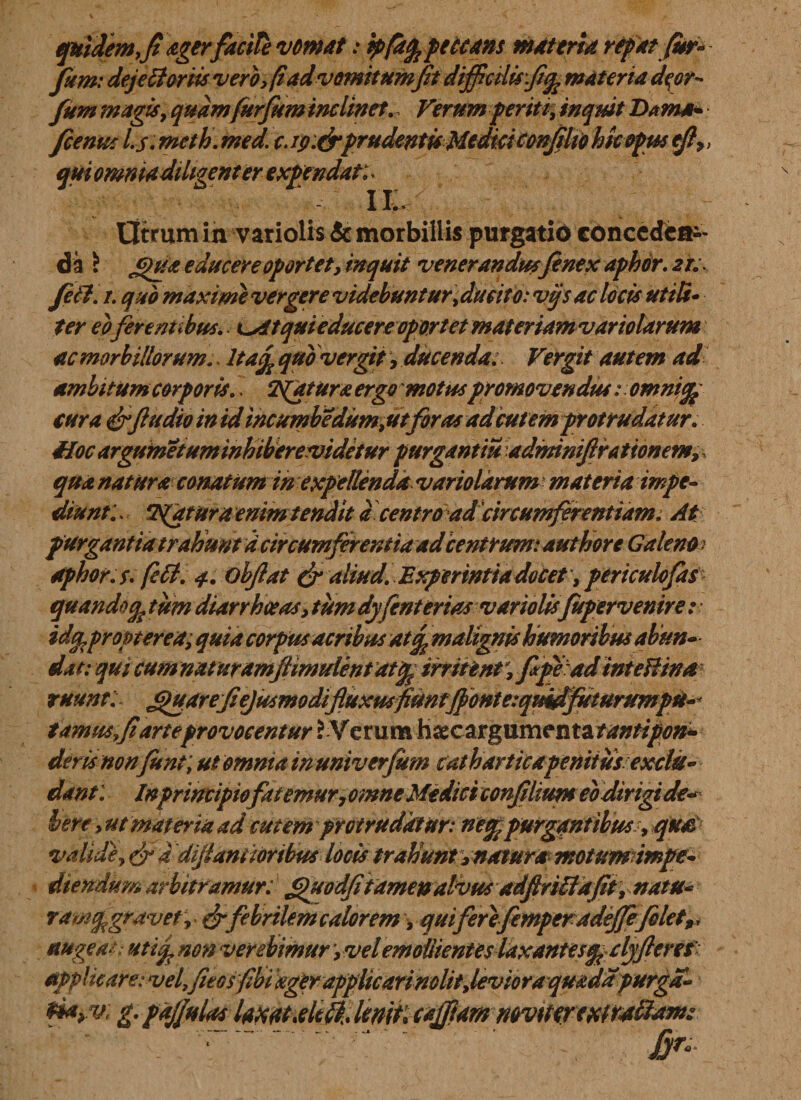 quidem, si æger facilè vomat: ipsaq́; peccans materia repat sur-
sum: dejectoriis verò, si ad vomitum sit difficilis: siq́; materia deor-
sum magis, quàm sursum inclinet. Verum periti, inquit Dama-
scenus l.5. meth. med. c.19. & prudentis Medici consilio hîc opus est,
qui omnia diligenter expendat.
II.
Utrum in variolis & morbillis purgatio conceden-
da? Quæ educere oportet, inquit venerandus senex aphor. 21.
sect. 1. quò maximè vergere videbuntur, ducito: vijs ac locis utili-
ter eò ferentibus. Atqui educere oportet materiam variolarum
ac morbillorum. Itaq́; quò vergit, ducenda. Vergit autem ad
ambitum corporis. Naturæ ergo motus promovendus: omniq́;
cura & studio in id incumbēdum, ut foras ad cutem protrudatur.
Hoc argumētum inhibere videtur purgantiū administrationem,
qua naturæ conatum in expellenda variolarum materia impe-
diunt. Natura enim tendit à centro ad circumferentiam. At
purgantia trahunt à circumferentia ad centrum: authore Galeno
aphor. 5. sect. 4. Obstat & aliud. Experintia docet, periculosas
quandoq́; tùm diarrhœas, tùm dysenterias variolis supervenire:
idq́; propterea; quia corpus acribus atq́; malignis humoribus abun-
dat: qui cum naturam stimulent atq́; irritent, sæpè ad intestina
ruunt. Quare si ejusmodi fluxus fiunt spontè: quid futurum pu-
tamus, si arte provocentur? Verum hæc argumenta tanti pon-
deris non sunt, ut omnia in universum cathartica penitùs exclu-
dant. In principio fatemur, omne Medici consilium eò dirigi de-
bere, ut materia ad cutem protrudatur: neq́; purgantibus, quæ
validè, & à distantioribus locis trahunt, naturæ motum impe-
diendum arbitramur. Quod si tamen alvus adstricta sit, natu-
ramq́; gravet, & febrilem calorem, qui ferè semper adesse solet,
augeat: utiq́; non verebimur, vel emollientes laxantesq́; clysteres
applicare: vel, si eos sibi æger applicari nolit, leviora quædā purgā-
tia, v. g. passulas laxat. elect. lenit. cassiam noviter extractam:
syr.